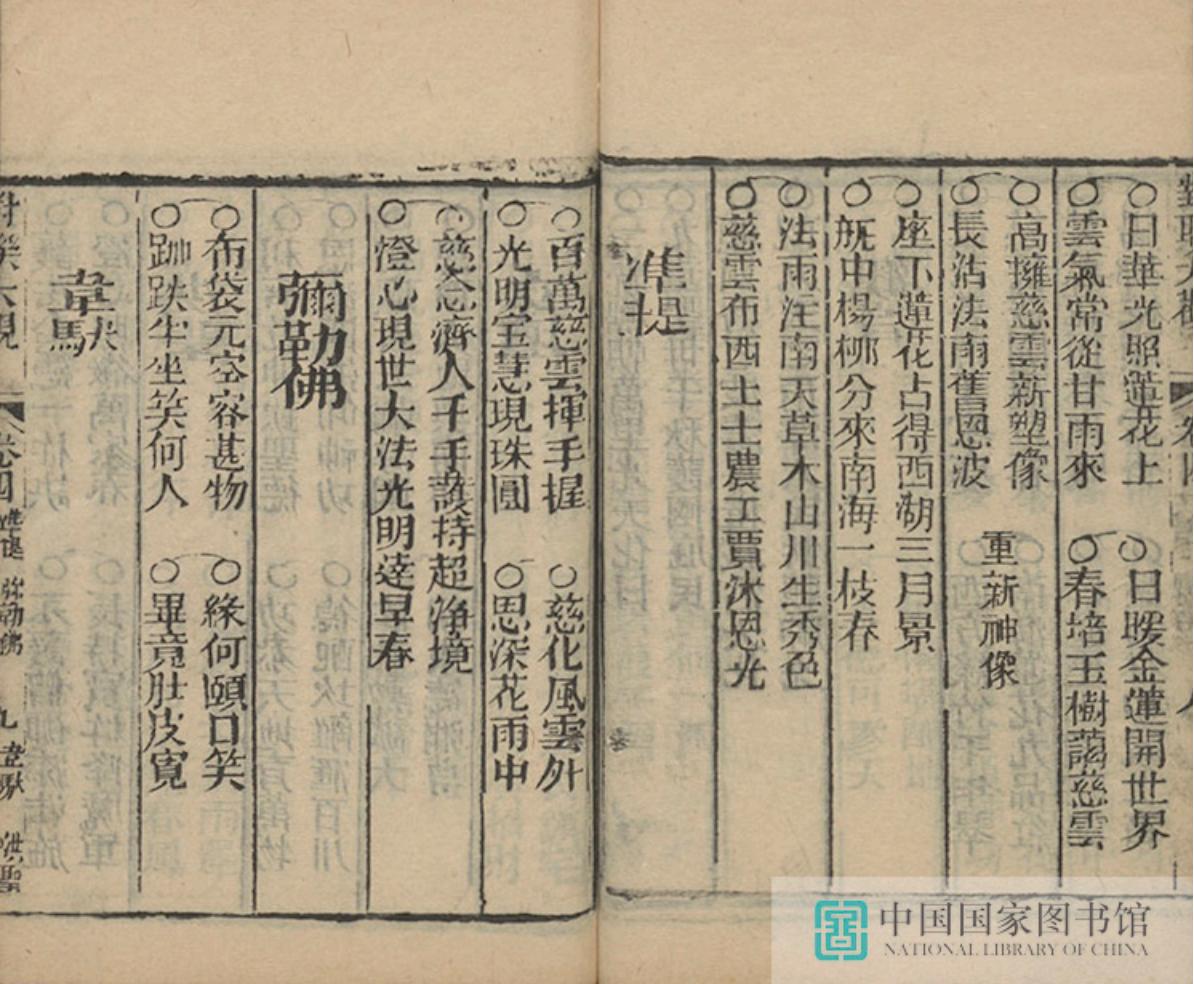 日華光照蓮花上
日暖金蓮開世界
雲氣常從甘雨來
春培玉樹藹慈雲
高擁慈雲新塑像
重新神像
長沾法雨舊恩波
座下蓮花占得西湖三月景
瓶中楊栁分來南海一枝春
法雨注南天草木山川生秀色
慈雲布西土士農工賈沐恩光
準提
百萬慈雲揮手握
慈化風雲外
光明宝慧現珠圓
思深花雨中
慈念濟人千手護持超净境
燈心現世大法光明達早春
彌勒佛
布袋元空容甚物
緣何頤口笑
跏趺半坐笑何人
畢竟肚皮寬
韋馱
卷四
中国国家图书馆
NATIONAL LIBRARY OF CHINA